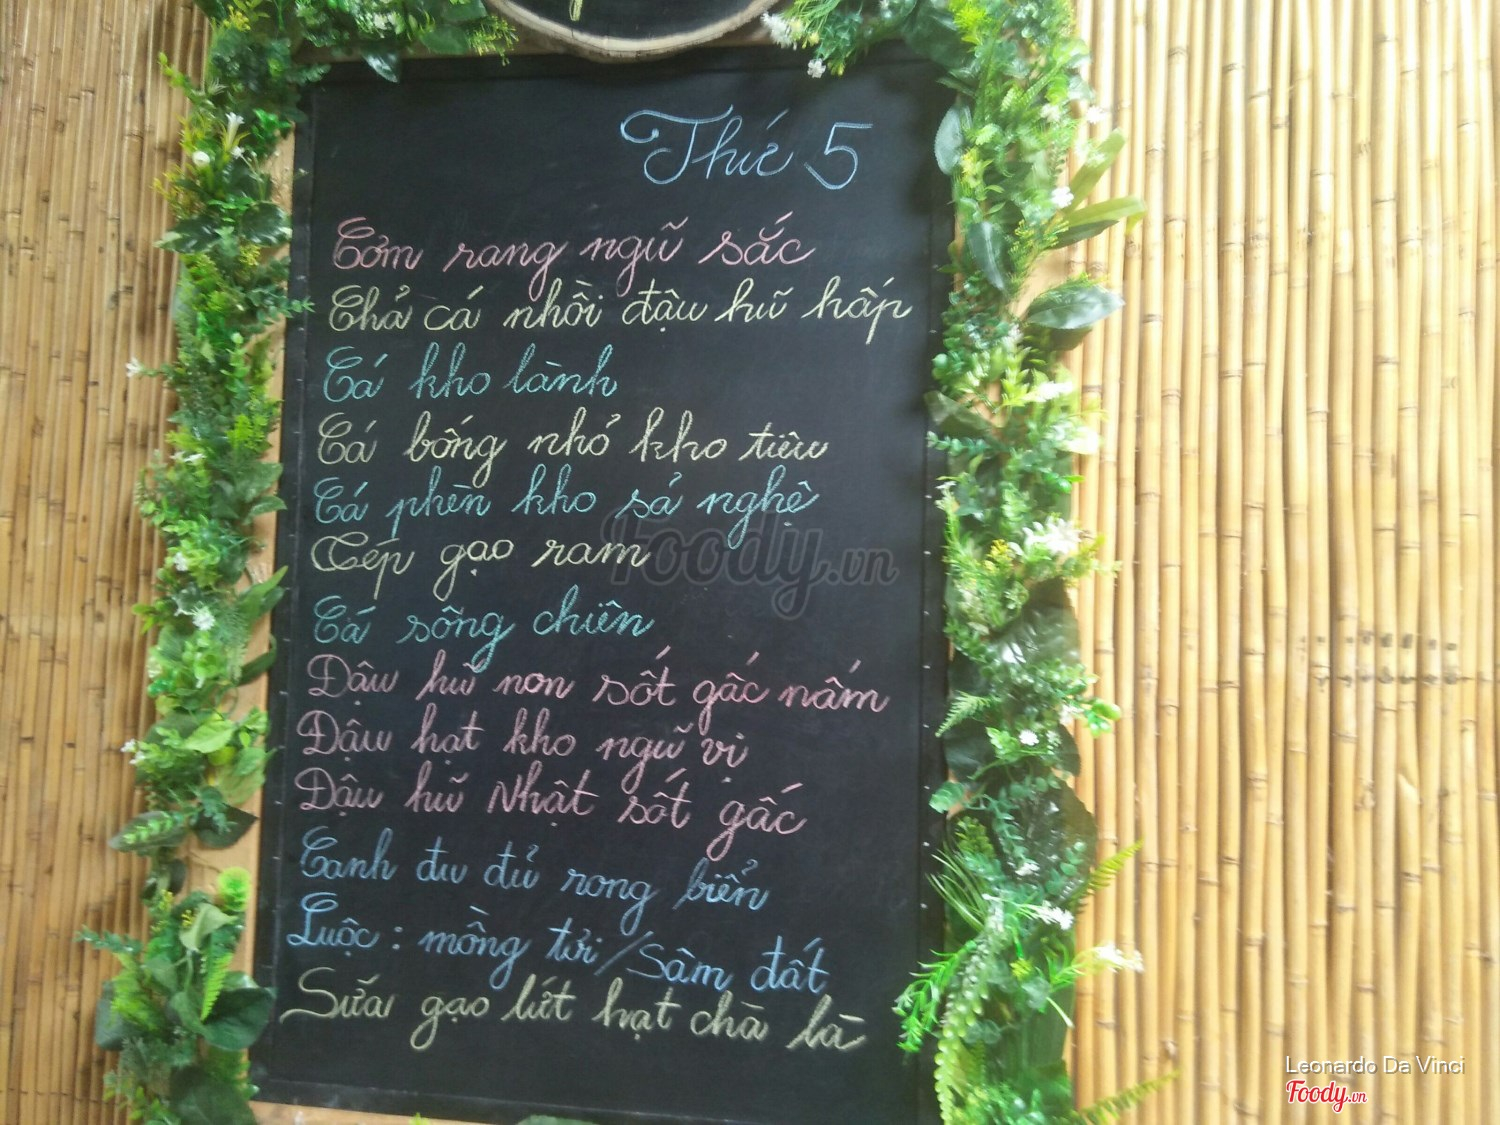 Thứ 5
Cơm rang ngũ sắc
Chả cá nhồi đậu hũ hấp
Cá kho lành
Cá bống nhỏ kho tiêu
Cá phèn kho sả nghệ
Tép gạo ram
Cá sông chiên
Đậu hũ non sốt gấc nấm
Đậu hạt kho ngũ vị
Đậu hũ Nhật sốt gấc
Canh đu đủ rong biển
Luộc: mồng tơi/Sâm đất
Sữa gạo lứt hạt chà là
Foody.vn
Leonardo Da Vinci
Foody.vn